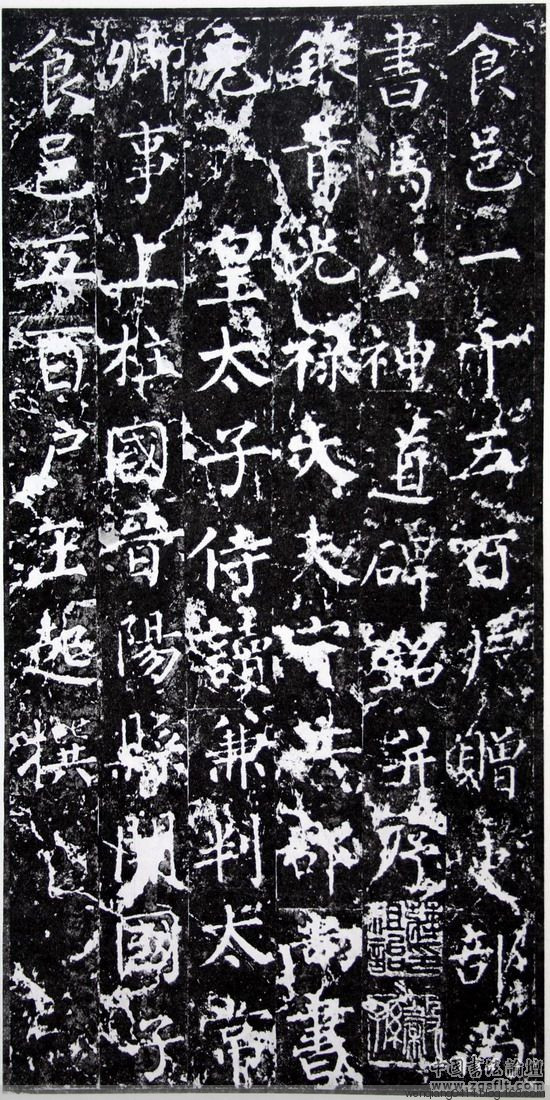 食邑一千五百戶贈吏部尚
書馮公神道碑銘并序
銀青光祿大夫守兵部尚書
充皇太子侍讀兼判太常
卿事上柱國晉陽縣開國子
食邑五百戶王起撰
中国书法论坛
www.zgsflt.com